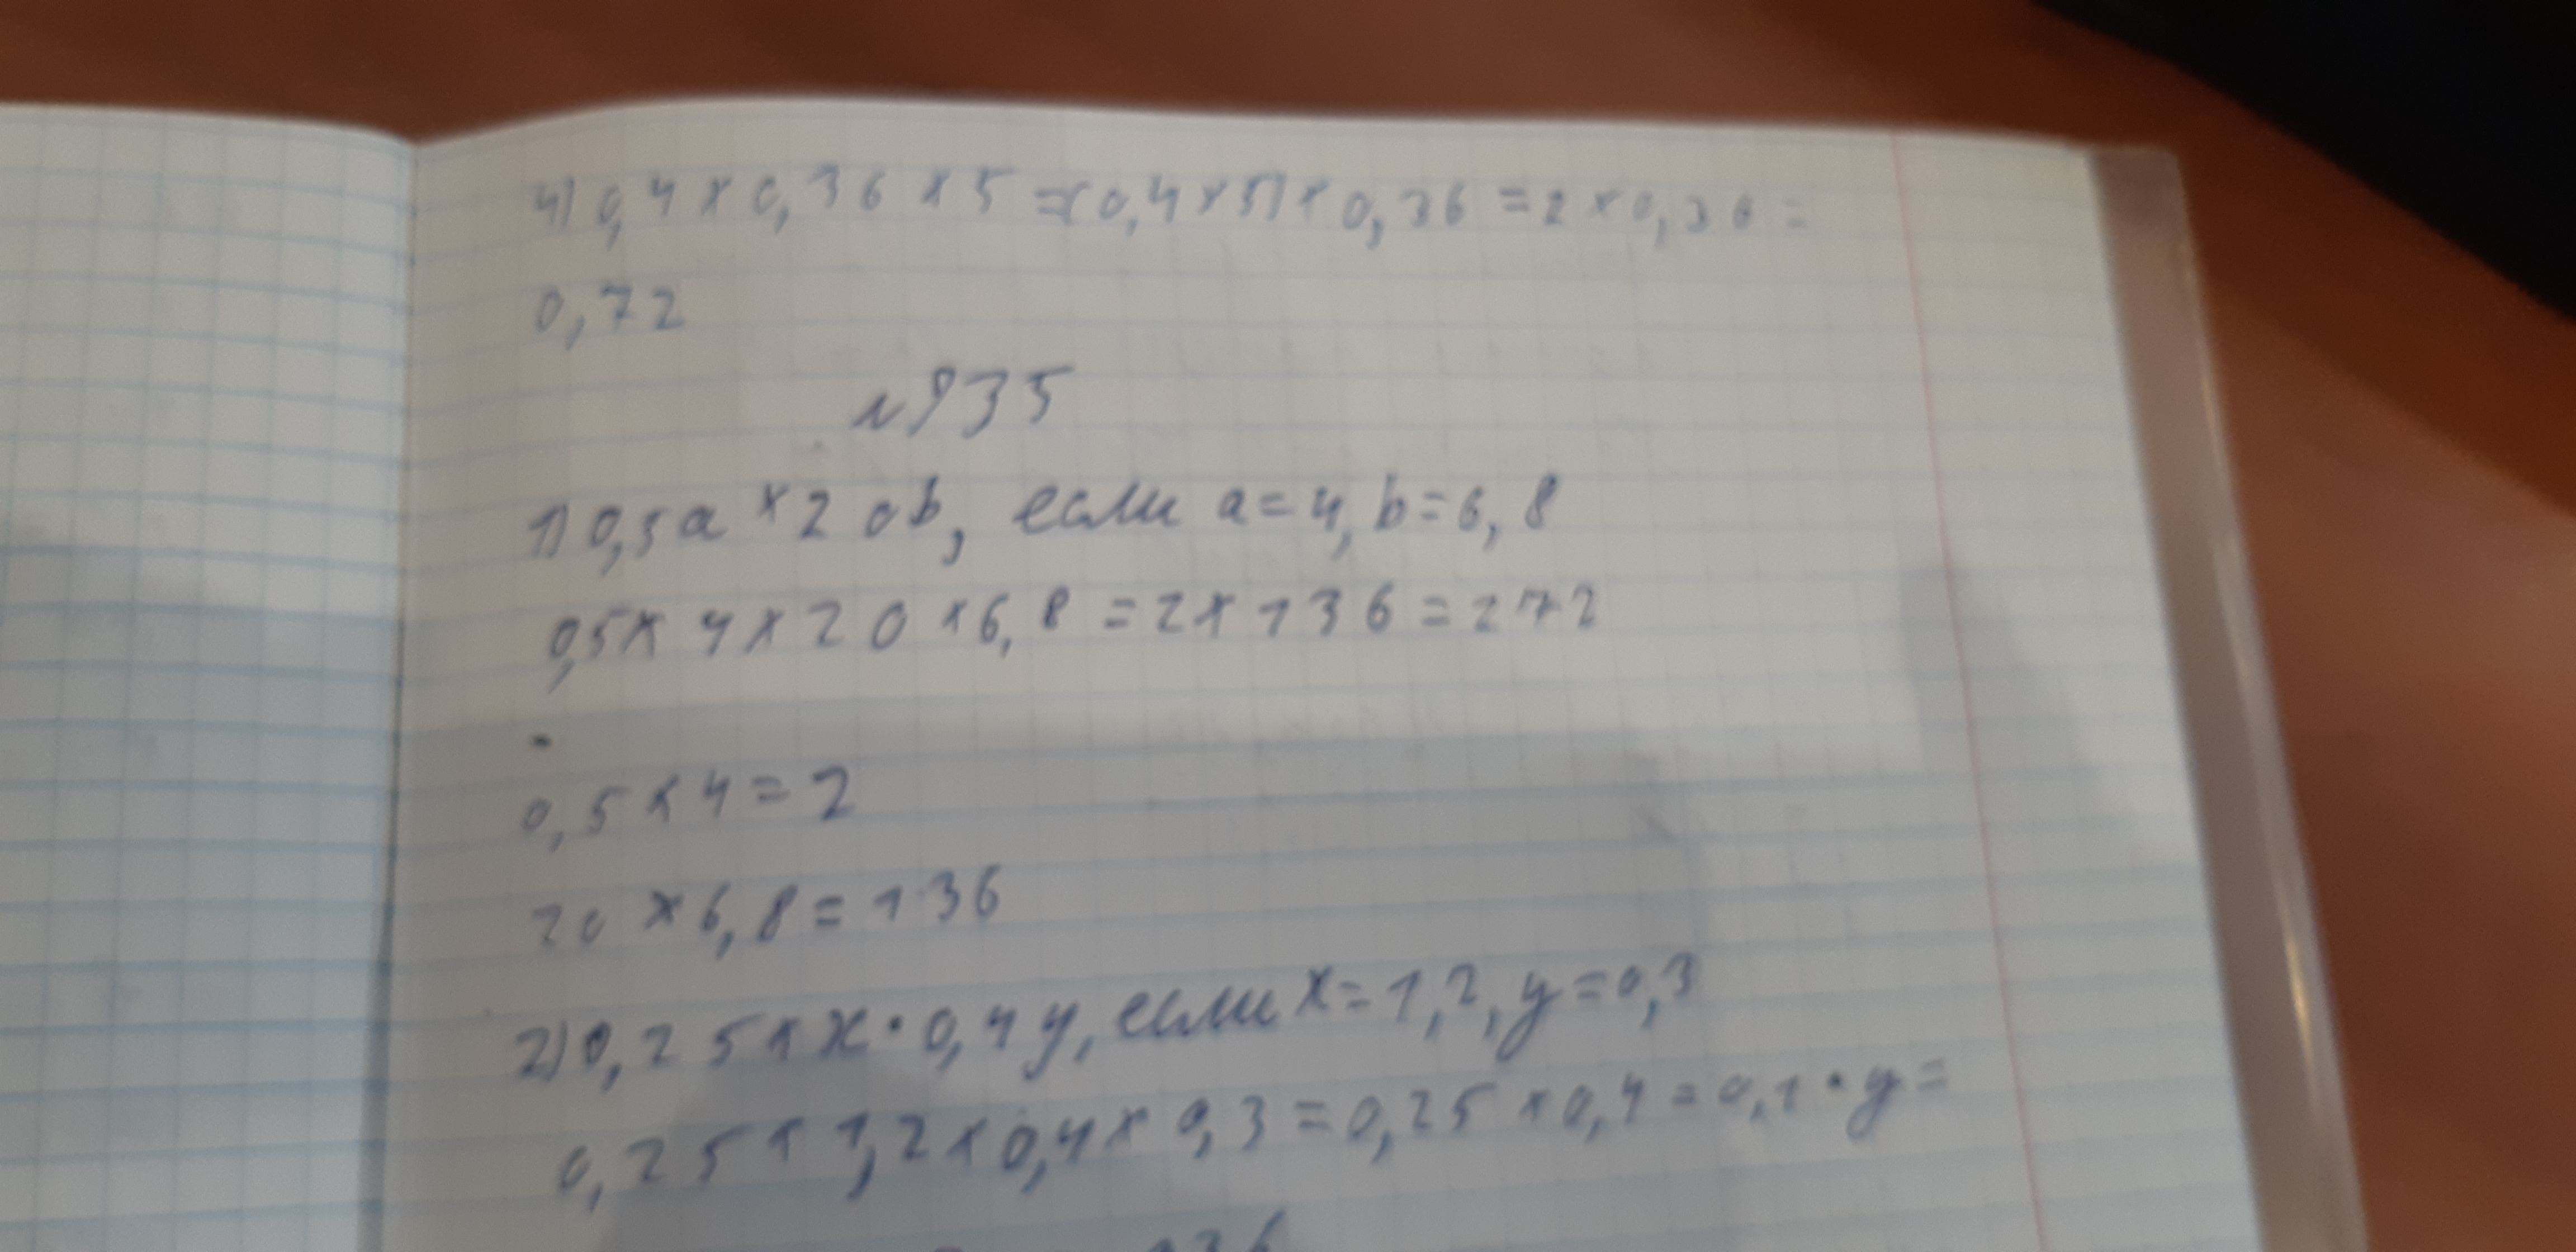 4) 0,4 × 0,36 × 5 = (0,4 × 5) × 0,36 = 2 × 0,36 =
0,72
№935
1) 0,5a × 20b, если a = 4, b = 6,8
0,5 × 4 × 20 × 6,8 = 2 × 136 = 272
0,5 × 4 = 2
20 × 6,8 = 136
2) 0,25 × x · 0,4y, если x = 1,2, y = 0,3
0,25 × 1,2 × 0,4 × 0,3 = 0,25 × 0,4 = 0,1 · y =